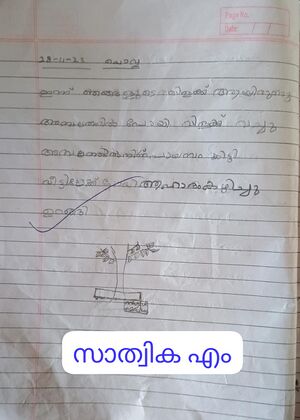 Page No.
Date: / /
28-11-23 ചൊവ്വ
ഇന്ന് ഞങ്ങളുടെ വിളക്ക് ആയിരുന്നു
അമ്പലത്തിൽ പോയി വിളക്ക് വച്ചു
അമ്പലത്തിൽനിന്ന് പായസം കിട്ടി
വീട്ടിലേക്ക് ആഹാരം കഴിച്ചു
ഉറങ്ങി
സാത്വിക എം